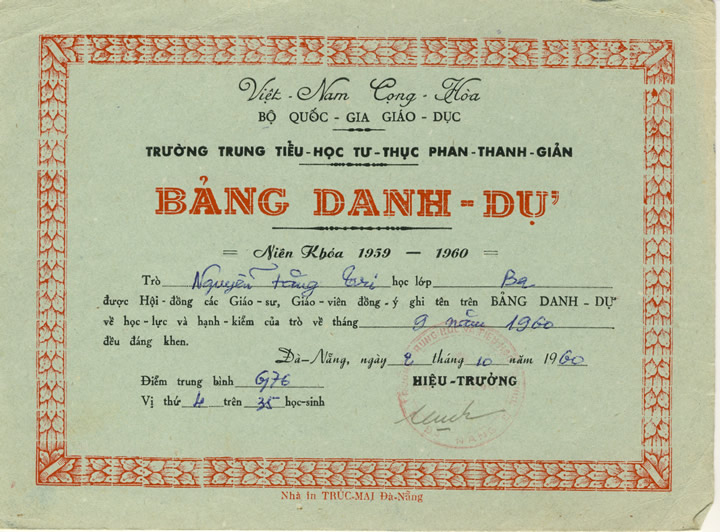 Việt - Nam Cọng - Hòa
BỘ QUỐC - GIA GIÁO - DỤC
TRƯỜNG TRUNG TIỂU - HỌC TƯ - THỤC PHAN - THANH - GIẢN
BẢNG DANH - DỰ
= Niên Khóa 1959 — 1960 =
Trò Nguyễn Hằng Tri học lớp Ba
được Hội - đồng các Giáo - sư, Giáo - viên đồng - ý ghi tên trên BẢNG DANH - DỰ
về học - lực và hạnh - kiểm của trò về tháng 9 năm 1960
đều đáng khen.
Đà - Nẵng, ngày 2 tháng 10 năm 1960
Điểm trung bình 6,76 HIỆU - TRƯỞNG
Vị thứ 4 trên 35 học - sinh
Nhà in TRÚC - MAI Đà - Nẵng